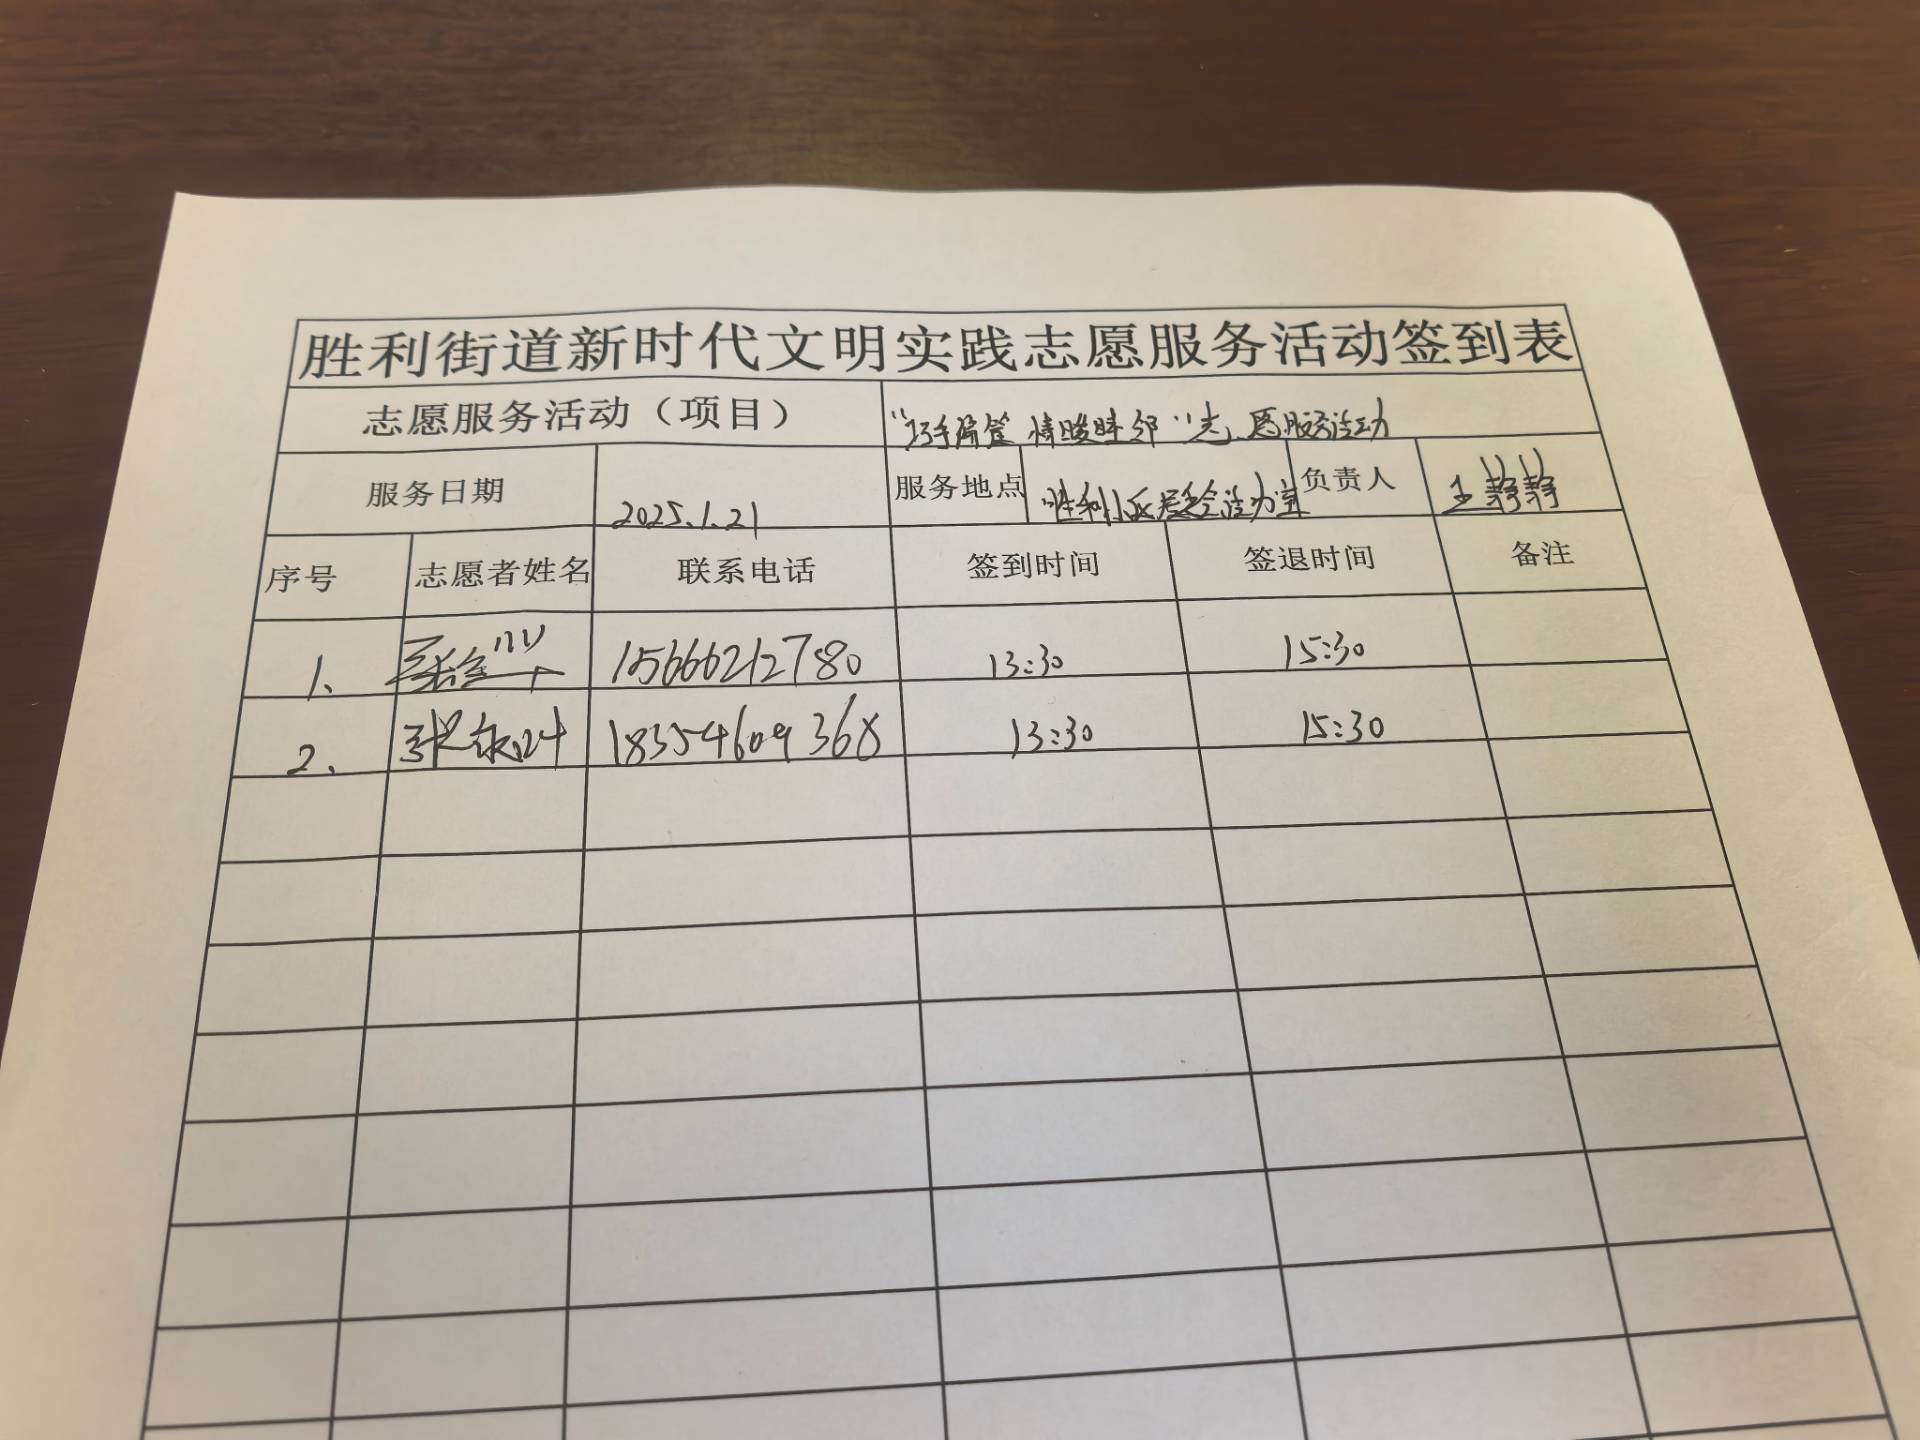 胜利街道新时代文明实践志愿服务活动签到表
志愿服务活动（项目） “巧手编筐 情暖睦邻”志愿服务活动
服务日期 2025.1.21 服务地点 胜利小区居委会活动室 负责人 王静静
序号 志愿者姓名 联系电话 签到时间 签退时间 备注
1、 15666212780 13:30 15:30
2、 18354609368 13:30 15:30